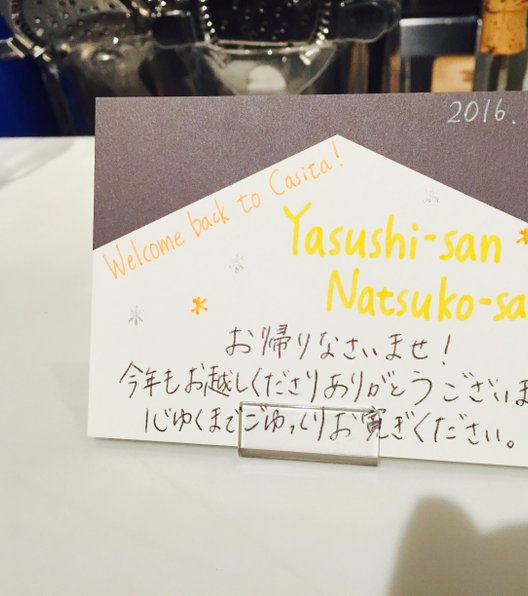 2016.
Welcome back to Casita!
Yasushi-san
Natsuko-sa
お帰りなさいませ!
今年もお越しくださりありがとうございま
心ゆくまでごゆっくりお寛ぎください。